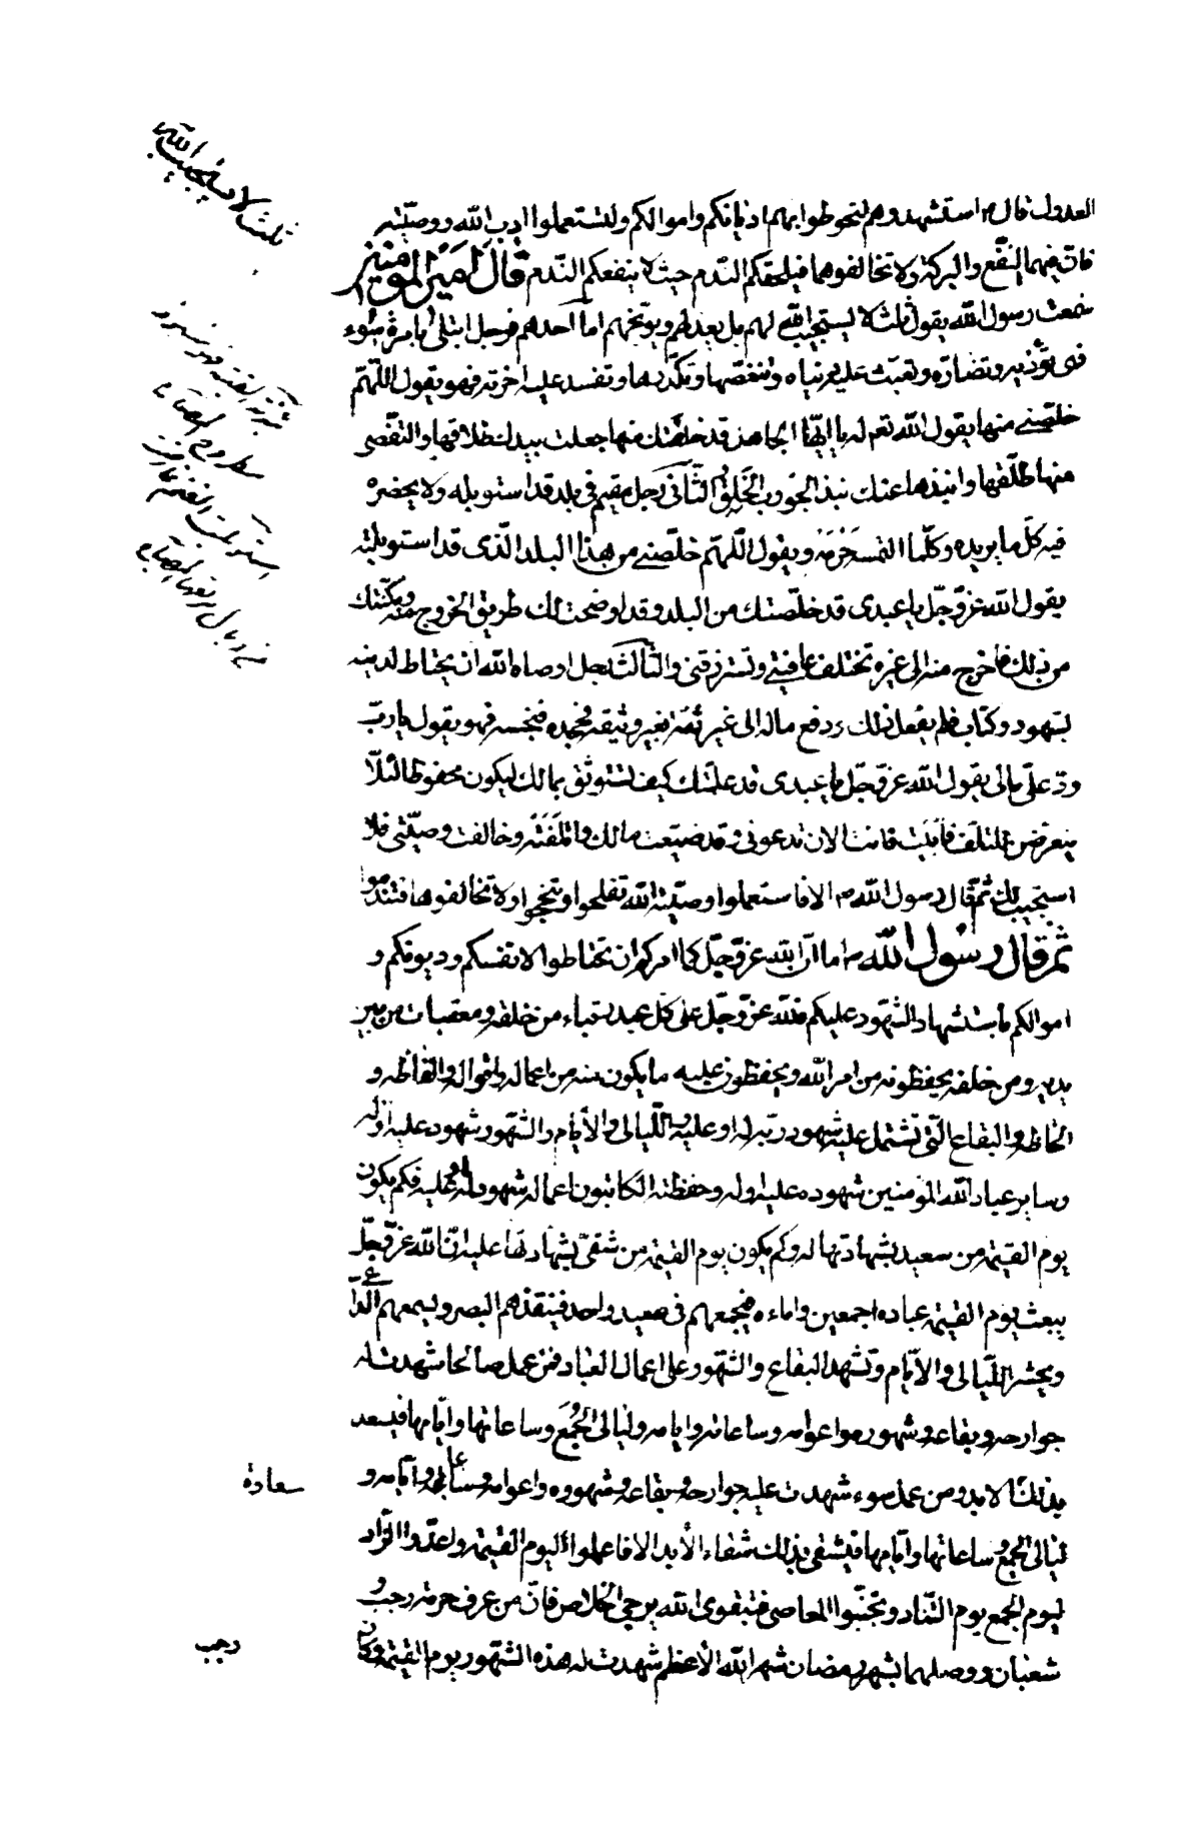 العدول قال م استشهدوهم لتحوطوا بهم اديانكم واموالكم ولتستعملوا ادب الله ووصيته
فان فيهما النفع والبركة ولا تخالفوهما فيلحقكم الندم حيث لا ينفعكم الندم قال امير المؤمنين
سمعت رسول الله يقول ثلثة لا يستجيب الله لهم بل يعذلهم ويوبخهم اما احدهم فرجل ابتلى بامرة سوء
فهى تؤذيه وتضاره وتعيب عليه دنياه وتنغصها وتكدرها وتفسد عليه اخرته فهو يقول اللهم
خلصنى منها يقول الله تعم له يا ايها الجاهل قد خلصتك منها جعلت بيدك طلاقها والتفصى
منها طلقها وانبذها عنك نبذ الجورب الخلق والثانى رجل مقيم فى بلد قد استوبله ولا يحضره
فيه كل ما يريده وكلما التمسه حرمه ويقول اللهم خلصنى من هذا البلد الذى قد استوبلته
يقول الله عز وجل يا عبدى قد خلصتك من البلد وقد اوضحت لك طريق الخروج منه ومكنتك
من ذلك فاخرج منه الى غيره تختلف عافيتى وتسترزقنى والثالث رجل اوصاه الله ان يحتاط لدينه
بشهود وكتاب فلم يفعل ذلك ودفع ماله الى غير ثقة بغير وثيقة فجحده فبخسه فهو يقول يا رب
رد على مالى يقول الله عز وجل يا عبدى قد علمتك كيف تستوثق بمالك ليكون محفوظا لئلا
يتعرض للتلف فأبيت فانت الان تدعونى وقد ضيعت مالك واتلفته وخالفت وصيتى فلا
استجيب لك ثم قال رسول الله ص الا فاستعملوا وصية الله تفلحوا وتنجوا ولا تخالفوها فتندموا
ثم قال رسول الله ص اما ان الله عز وجل كما امركم ان تحتاطوا لانفسكم وديونكم و
اموالكم باستشهاد الشهود عليكم فلله عز وجل على كل عبد رقباء من خلقه ومعقبات من بين
يديه ومن خلفه يحفظونه من امر الله ويحفظون عليه ما يكون منه من اعماله واقواله والفاظه و
الحاظه والبقاع التى تشتمل عليه شهود ربه له او عليه والليالى والأيام والشهور شهود عليه اوله
وساير عباد الله المؤمنين شهوده عليه اوله وحفظته الكاتبون اعماله شهود له او عليه فكم يكون
يوم القيمة من سعيد بشهادتها له وكم يكون يوم القيمة من شقى بشهادتها عليه ان الله عز وجل
يبعث يوم القيمة عباده اجمعين واماءه فيجمعهم فى صعيد واحد فينفذهم البصر ويسمعهم الداعى
ويحشر الليالى والأيام وتشهد البقاع والشهور على اعمال العباد فمن عمل صالحا شهدت له
جوارحه وبقاعه وشهوره واعوامه وساعاته وايامه وليالى الجمع وساعاتها وايامها فيسعد
بذلك الابد ومن عمل سوء شهدت عليه جوارحه وبقاعه وشهوره واعوامه وساعاته وايامه و
ليالى الجمع وساعاتها وايامها فيشقى بذلك شقاء الأبد الا فاعملوا ليوم القيمة واعدوا الزاد
ليوم الجمع يوم التناد وتجنبوا المعاصى فبتقوى الله يرجى الخلاص فان من عرف حرمة رجب و
شعبان ووصلهما بشهر رمضان شهر الله الأعظم شهدت له هذه الشهور يوم القيمة وكان
ثلثة لا يستجيب الله
سعادة
رجب